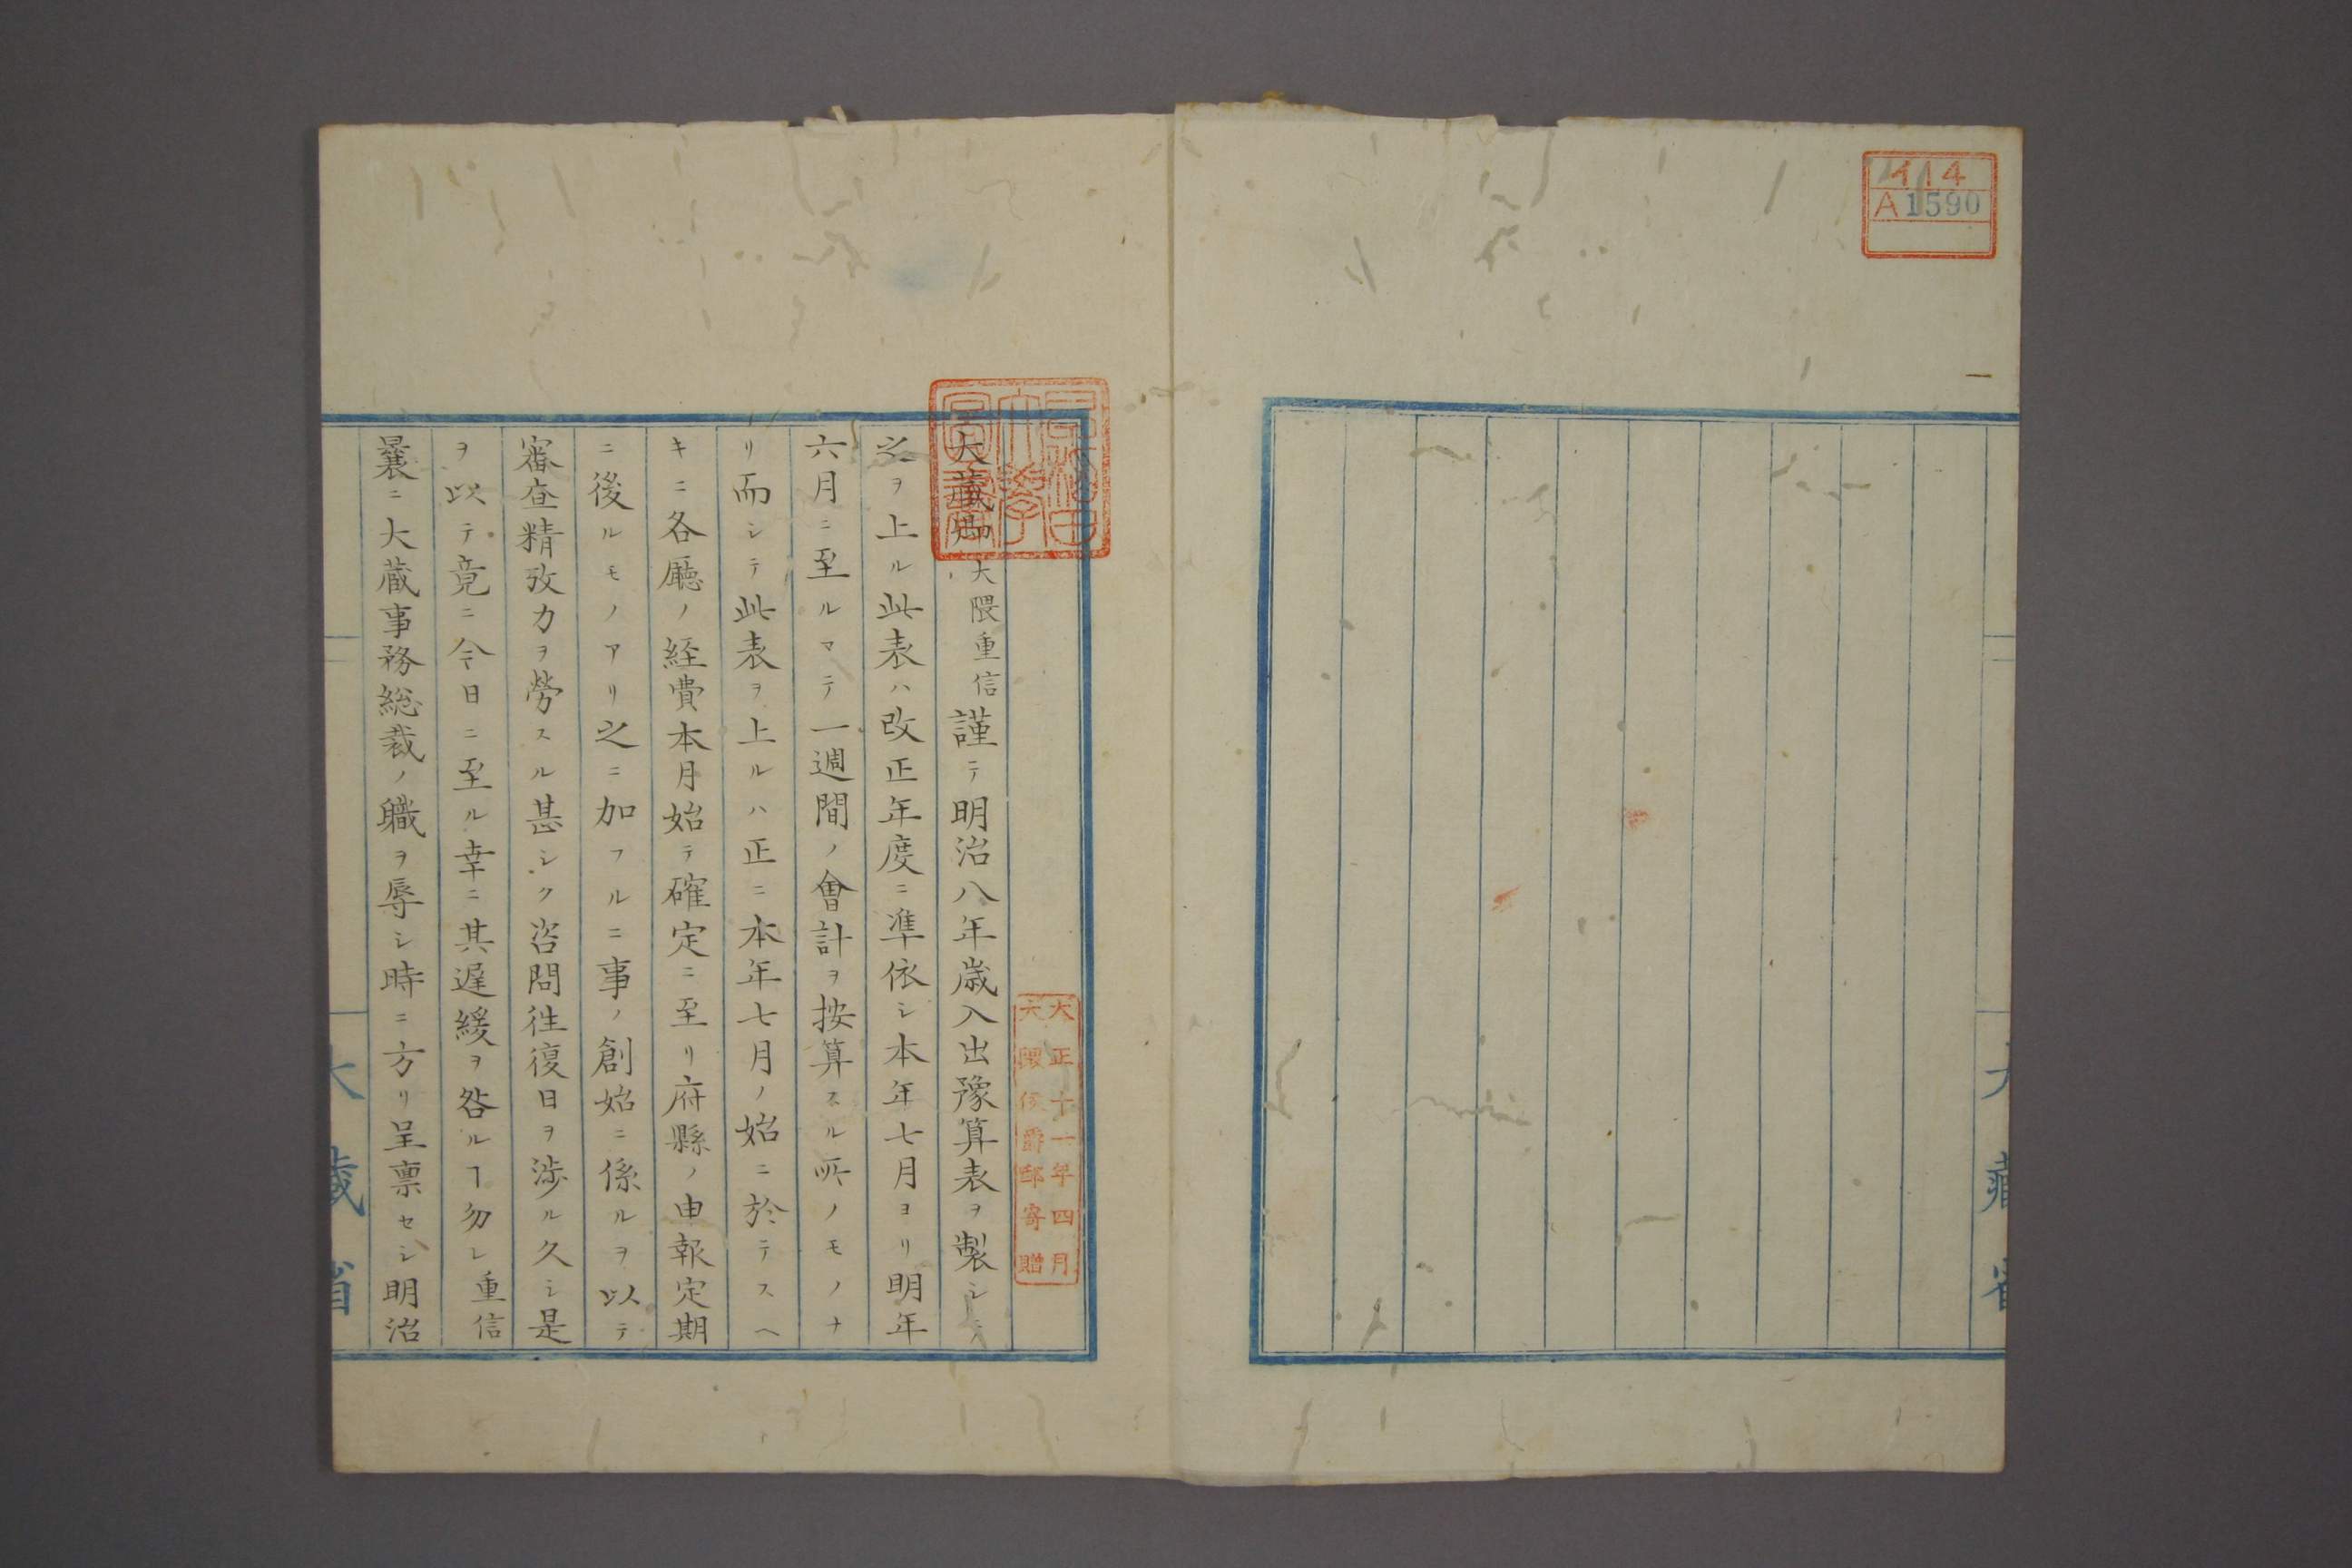 イ14
A1590
一
大藏省
早稲田大學圖書
大正十一年四月
大隈侯爵邸寄贈
大藏卿大隈重信謹テ明治八年歳入出豫算表ヲ製シテ
之ヲ上ル此表ハ改正年度ニ準依シ本年七月ヨリ明年
六月ニ至ルマテ一週間ノ會計ヲ按算スル所ノモノナ
リ而シテ此表ヲ上ルハ正ニ本年七月ノ始ニ於テスヘ
キニ各廳ノ経費本月始テ確定ニ至リ府縣ノ申報定期
ニ後ルモノアリ之ニ加フルニ事ノ創始ニ係ルヲ以テ
審査精攷力ヲ勞スル甚シク咨問徃復日ヲ渉ル久シ是
ヲ以テ竟ニ今日ニ至ル幸ニ其遅緩ヲ咎ルヿ勿レ重信
曩ニ大蔵事務総裁ノ職ヲ辱シ時ニ方リ呈稟セシ明治
大藏省